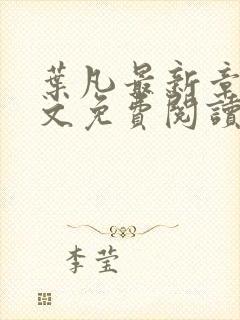 葉凡最新章
文免費閱讀
李莹